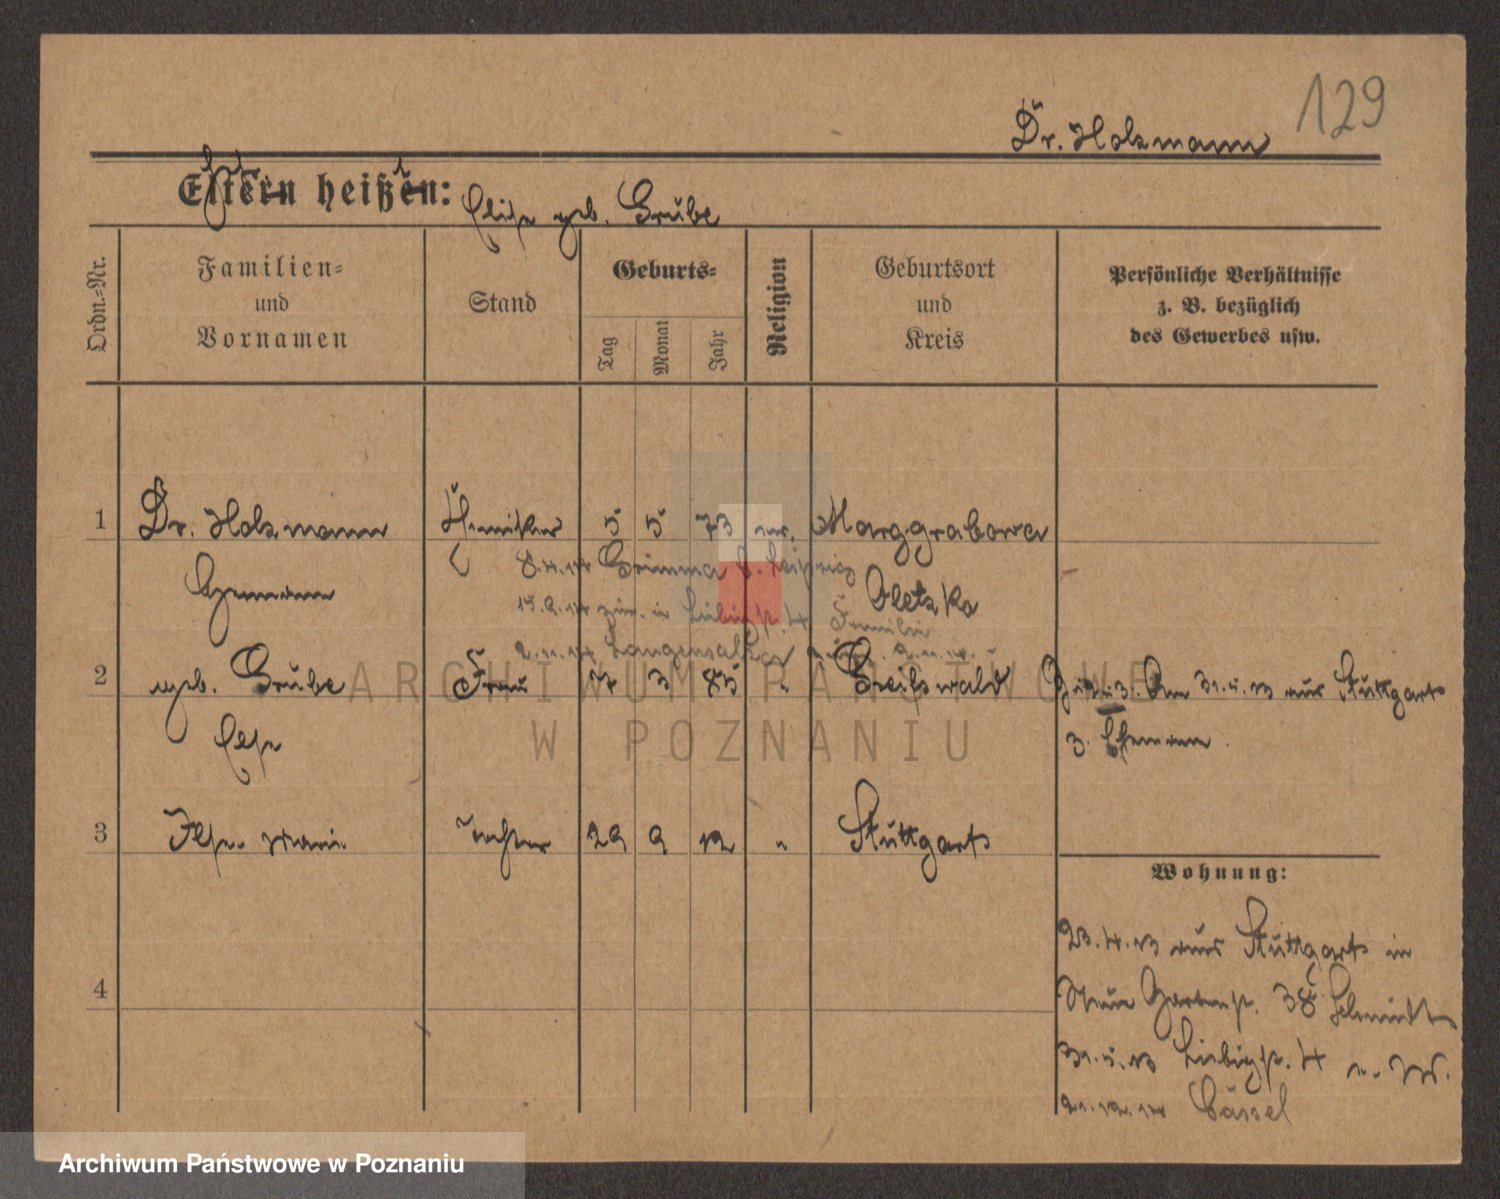 129
Dr. Holzmann
Eltern heißen: Elise geb. Grube
Ordn.-Nr.
Familien-
und
Vornamen
Stand
Geburts-
Tag
Monat
Jahr
Religion
Geburtsort
und
Kreis
Persönliche Verhältnisse
z. B. bezüglich
des Gewerbes usw.
1 Dr. Holzmann Chemiker 5 5 73 ev. Marggrabowa
8.4.14 Grimma b. Leipzig
Hermann Oletzko
15.9.14 zur. in Liebigstr. 4 Familie
2.11.14 Langensalza
2 geb. Grube Frau 17 3 85 " Greifswald
Am 31.5.13 aus Stuttgart
Else z. Ehemann.
3 Ilse Marie Tochter 29 9 12 " Stuttgart
Wohnung:
23.4.13 aus Stuttgart in
4
Neue Gartenstr. 38 Schmidt
31.5.13 Liebigstr. 4 e. W.
21.12.14 Cassel
ARCHIWUM PAŃSTWOWE
W POZNANIU
Archiwum Państwowe w Poznaniu